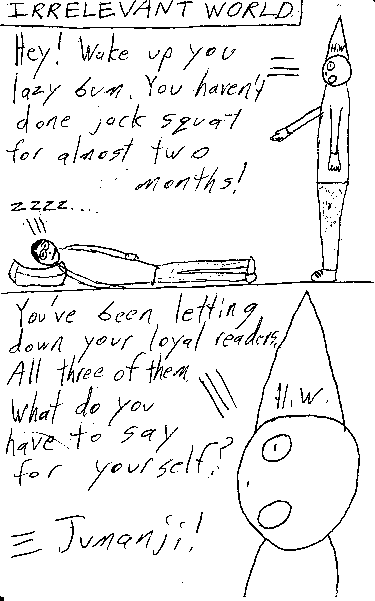 IRRELEVANT WORLD
Hey! Wake up you
lazy bum. You haven't
done jack squat
for almost two
months!
H.W.
zzzz....
You've been letting
down your loyal readers,
All three of them.
What do you
have to say
for yourself?
H.W.
Jumanji!